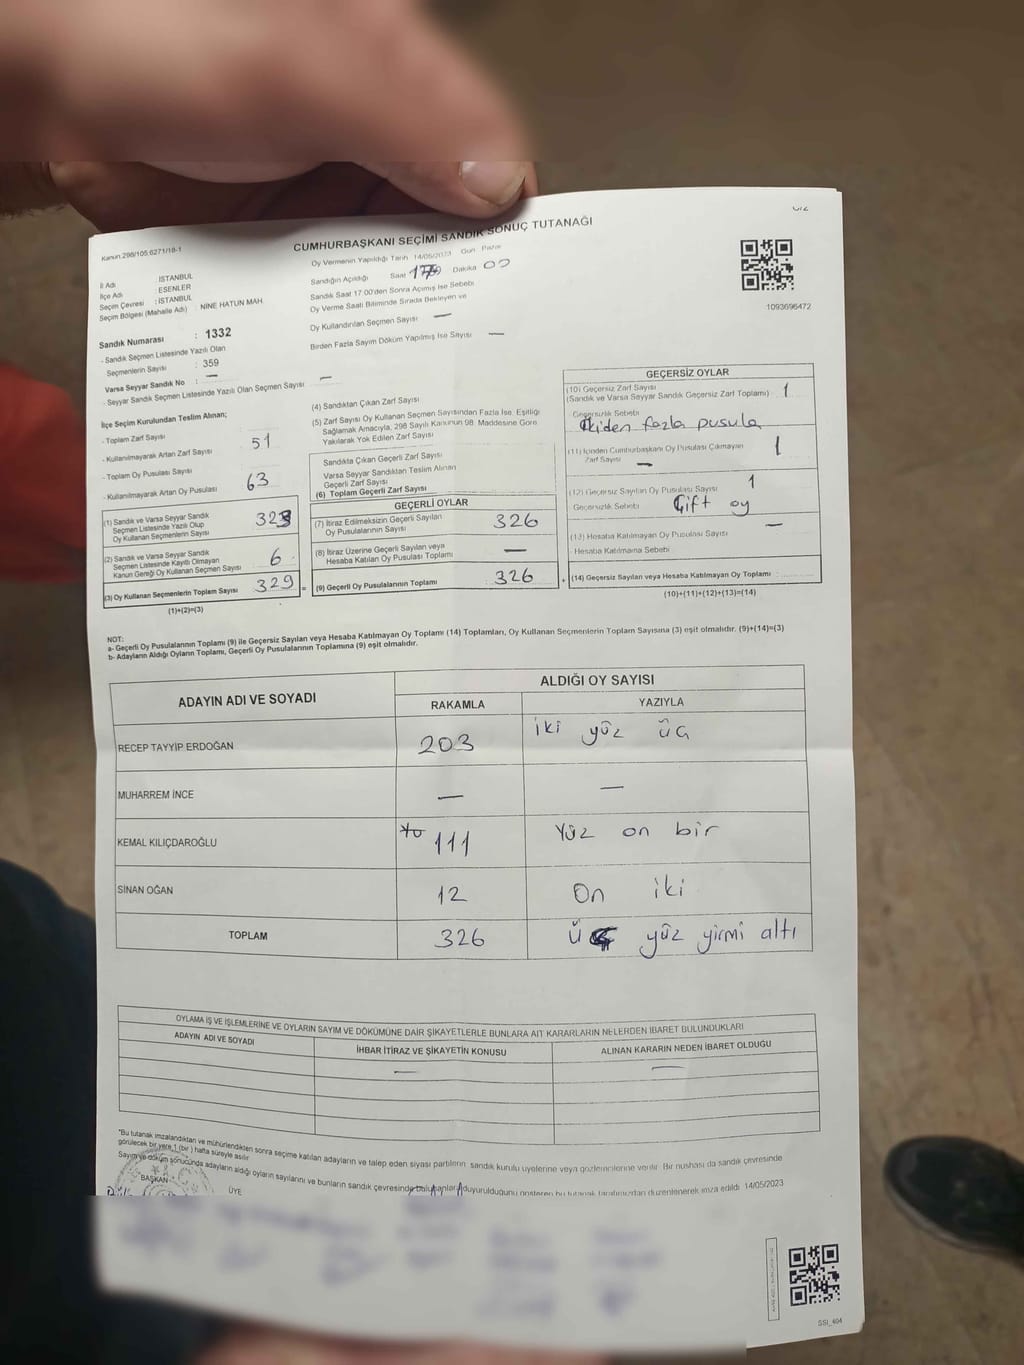 CUMHURBAŞKANI SEÇİMİ SANDIK SONUÇ TUTANAĞI
Kanun:298/105:6271/18-1
Oy Vermenin Yapıldığı Tarih 14/05/2023 Gün Pazar
Sandığın Açıldığı Saat Dakika 00
Sandık Saat 17:00'den Sonra Açılmış İse Sebebi
Oy Verme Saati Bitiminde Sırada Bekleyen ve
Oy Kullandırılan Seçmen Sayısı —
Birden Fazla Sayım Döküm Yapılmış İse Sayısı —
İl Adı : İSTANBUL
İlçe Adı : ESENLER
Seçim Çevresi : İSTANBUL
Seçim Bölgesi (Mahalle Adı) : NİNE HATUN MAH.
Sandık Numarası : 1332
- Sandık Seçmen Listesinde Yazılı Olan
Seçmenlerin Sayısı : 359
Varsa Seyyar Sandık No : —
- Seyyar Sandık Seçmen Listesinde Yazılı Olan Seçmen Sayısı —
1093696472
İlçe Seçim Kurulundan Teslim Alınan;
- Toplam Zarf Sayısı
- Kullanılmayarak Artan Zarf Sayısı 51
- Toplam Oy Pusulası Sayısı
- Kullanılmayarak Artan Oy Pusulası 63
(1) Sandık ve Varsa Seyyar Sandık
Seçmen Listesinde Yazılı Olup
Oy Kullanan Seçmenlerin Sayısı 323
(2) Sandık ve Varsa Seyyar Sandık
Seçmen Listesinde Kayıtlı Olmayan
Kanun Gereği Oy Kullanan Seçmen Sayısı 6
(3) Oy Kullanan Seçmenlerin Toplam Sayısı 329 =
(1)+(2)=(3)
(4) Sandıktan Çıkan Zarf Sayısı
(5) Zarf Sayısı Oy Kullanan Seçmen Sayısından Fazla İse, Eşitliği
Sağlamak Amacıyla, 298 Sayılı Kanunun 98. Maddesine Göre
Yakılarak Yok Edilen Zarf Sayısı
Sandıkta Çıkan Geçerli Zarf Sayısı
Varsa Seyyar Sandıktan Teslim Alınan
Geçerli Zarf Sayısı
(6) Toplam Geçerli Zarf Sayısı
GEÇERLİ OYLAR
(7) İtiraz Edilmeksizin Geçerli Sayılan
Oy Pusulalarının Sayısı 326
(8) İtiraz Üzerine Geçerli Sayılan veya
Hesaba Katılan Oy Pusulası Toplamı —
(9) Geçerli Oy Pusulalarının Toplamı 326 +
GEÇERSİZ OYLAR
(10) Geçersiz Zarf Sayısı 1
(Sandık ve Varsa Seyyar Sandık Geçersiz Zarf Toplamı)
Geçersizlik Sebebi
ikiden fazla pusula
(11) İçinden Cumhurbaşkanı Oy Pusulası Çıkmayan 1
Zarf Sayısı —
(12) Geçersiz Sayılan Oy Pusulası Sayısı 1
Geçersizlik Sebebi Çift oy
(13) Hesaba Katılmayan Oy Pusulası Sayısı —
- Hesaba Katılmama Sebebi
(14) Geçersiz Sayılan veya Hesaba Katılmayan Oy Toplamı
(10)+(11)+(12)+(13)=(14)
NOT:
a- Geçerli Oy Pusulalarının Toplamı (9) ile Geçersiz Sayılan veya Hesaba Katılmayan Oy Toplamı (14) Toplamları, Oy Kullanan Seçmenlerin Toplam Sayısına (3) eşit olmalıdır. (9)+(14)=(3)
b- Adayların Aldığı Oyların Toplamı, Geçerli Oy Pusulalarının Toplamına (9) eşit olmalıdır.
ADAYIN ADI VE SOYADI
ALDIĞI OY SAYISI
RAKAMLA YAZIYLA
RECEP TAYYİP ERDOĞAN 203 iki yüz üç
MUHARREM İNCE — —
KEMAL KILIÇDAROĞLU 111 Yüz on bir
SİNAN OĞAN 12 On iki
TOPLAM 326 üç yüz yirmi altı
OYLAMA İŞ VE İŞLEMLERİNE VE OYLARIN SAYIM VE DÖKÜMÜNE DAİR ŞİKAYETLERLE BUNLARA AİT KARARLARIN NELERDEN İBARET BULUNDUKLARI
ADAYIN ADI VE SOYADI İHBAR İTİRAZ VE ŞİKAYETİN KONUSU ALINAN KARARIN NEDEN İBARET OLDUĞU
— —
*Bu tutanak imzalandıktan ve mühürlendikten sonra seçime katılan adayların ve talep eden siyasi partilerin sandık kurulu üyelerine veya gözlemcilerine verilir. Bir nüshası da sandık çevresinde
görülecek bir yere 1 (bir) hafta süreyle asılır.
Sayım ve döküm sonucunda adayların aldığı oyların sayılarını ve bunların sandık çevresinde bulunanlara duyurulduğunu gösteren bu tutanak tarafımızdan düzenlenerek imza edildi. 14/05/2023
BAŞKAN ÜYE
SSI_404